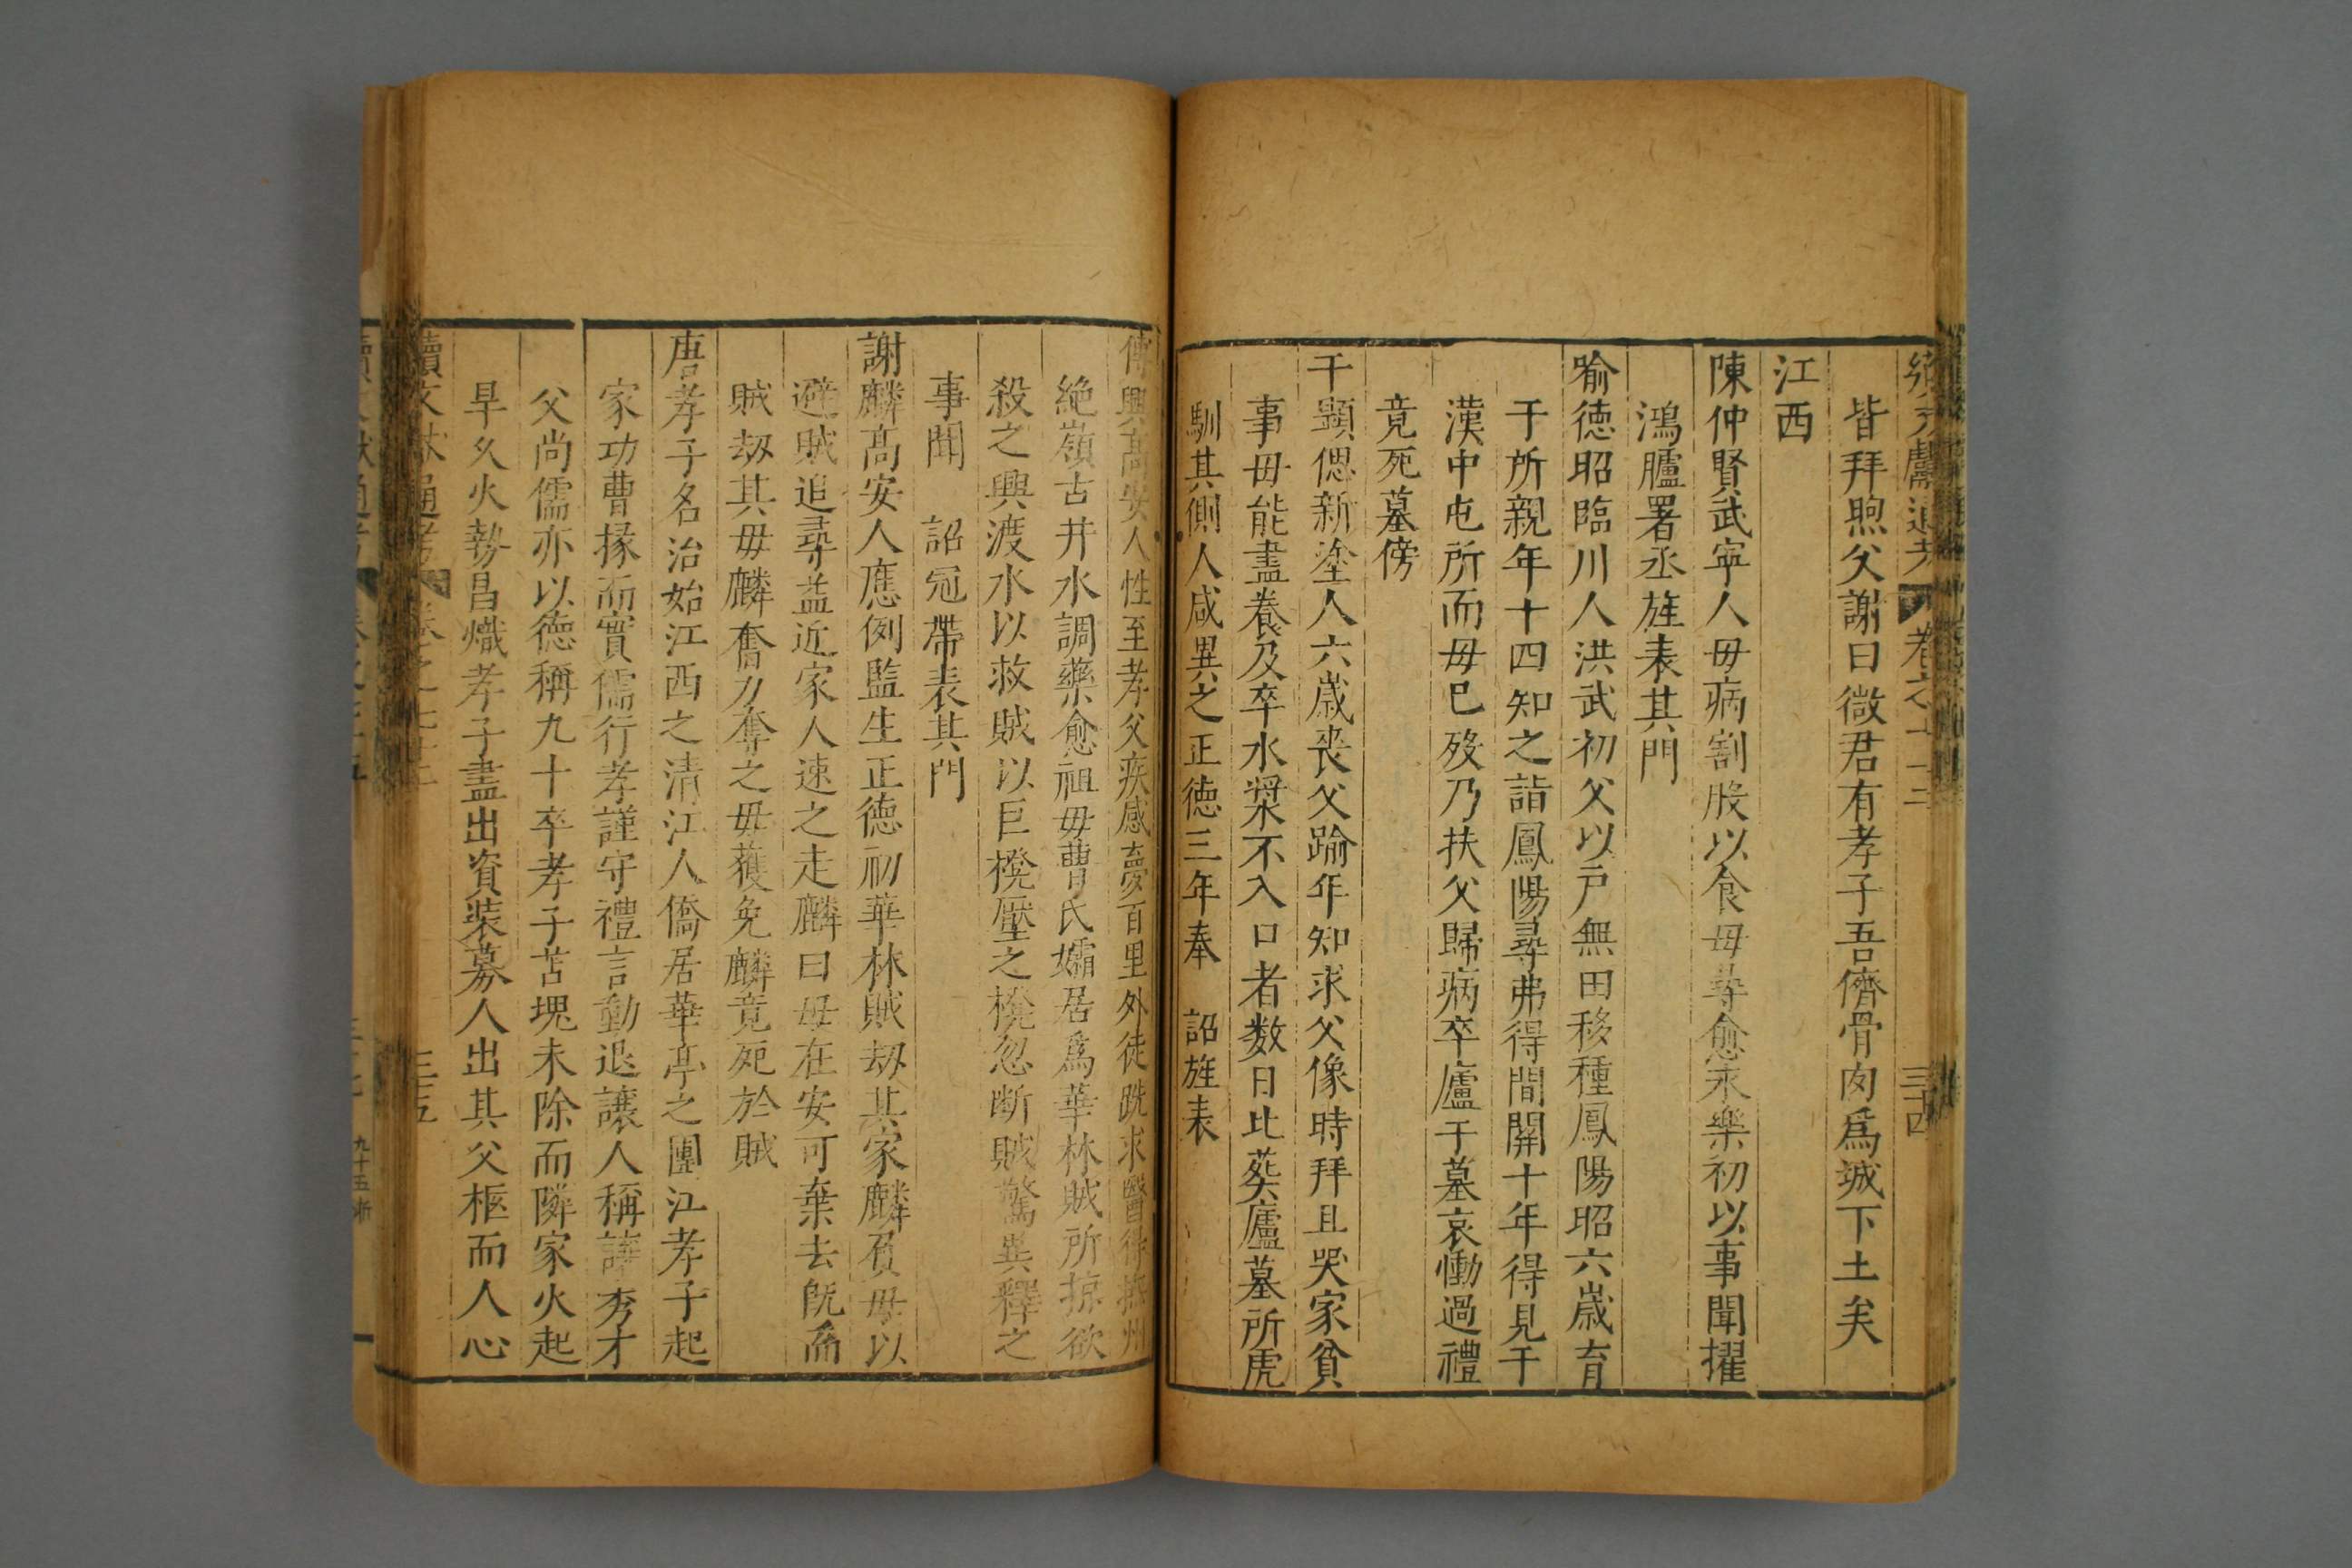 續文獻通考 卷之七十二 三十四
皆拜煦父謝曰微君有孝子吾儕骨肉爲誠下土矣
江西
陳仲賢武寧人毋病割股以食毋尋愈永樂初以事聞擢
鴻臚署丞旌表其門
喻德昭臨川人洪武初父以戸無田移種鳳陽昭六歲育
于所親年十四知之詣鳳陽尋弗得間關十年得見于
漢中屯所而毋已殁乃扶父歸病卒廬于墓哀慟過禮
竟死墓傍
干顕偲新塗人六歲喪父踰年知求父像時拜且哭家貧
事毋能盡養及卒水漿不入口者数日比葬廬墓所虎
馴其側人咸異之正德三年奉 詔旌表
傅興高安人性至孝父疾感夢百里外徒跣求醫得撫州
絶嶺古井水調藥愈祖毋曹氏孀居爲華林賊所掠欲
殺之興渡水以救賊以巨櫈壓之櫈忽斷賊驚異釋之
事聞 詔冠帶表其門
謝麟高安人應例監生正德初華林賊刼其家麟負毋以
避賊追尋益近家人速之走麟曰毋在安可棄去旣而
賊刼其毋麟奮力奪之毋獲免麟竟死於賊
唐孝子名治始江西之清江人僑居華亭之團江孝子起
家功曹掾而實儒行孝謹守禮言動退讓人稱謙秀才
父尚儒亦以德稱九十卒孝子苫塊未除而隣家火起
旱久火勢昌熾孝子盡出資裝募人出其父柩而人心
續文獻通考 卷之七十二 三十五
九十五